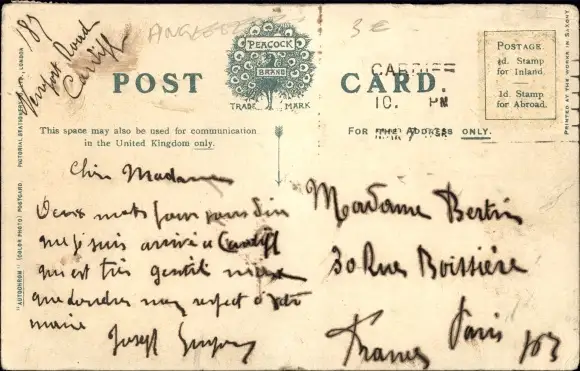 183
Road
Cardiff
ANGLETERRE
3€
POST CARD.
PEACOCK
BRAND
TRADE MARK
CARDIFF
10. PM
POSTAGE.
½d. Stamp
for Inland.
1d. Stamp
for Abroad.
PRINTED AT THE WORKS IN SAXONY
"AUTOCHROM" (COLOR PHOTO) POSTCARD. PICTORIAL LONDON
This space may also be used for communication
in the United Kingdom only.
FOR THE ADDRESS ONLY.
Madame
Deux mots pour vous dire
que je suis arrivé a Cardiff
qui est très gentil mieux
que Londres mes respect a votre
marie
Joseph
Madame Bertin
30 Rue Boissiére
Paris
France
183